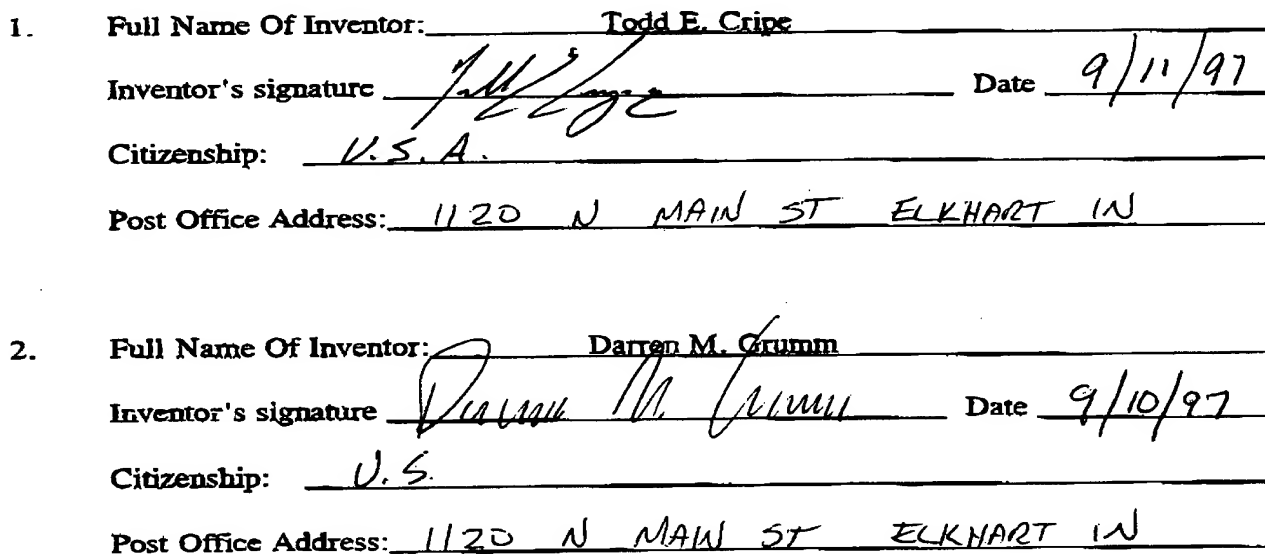 1. Full Name Of Inventor: Todd E. Cripe
Inventor's signature Date 9/11/97
Citizenship: U.S.A.
Post Office Address: 1120 N MAIN ST ELKHART IN
2. Full Name Of Inventor: Darren M. Grumm
Inventor's signature Darren M. Grumm Date 9/10/97
Citizenship: U.S.
Post Office Address: 1120 N MAIN ST ELKHART IN